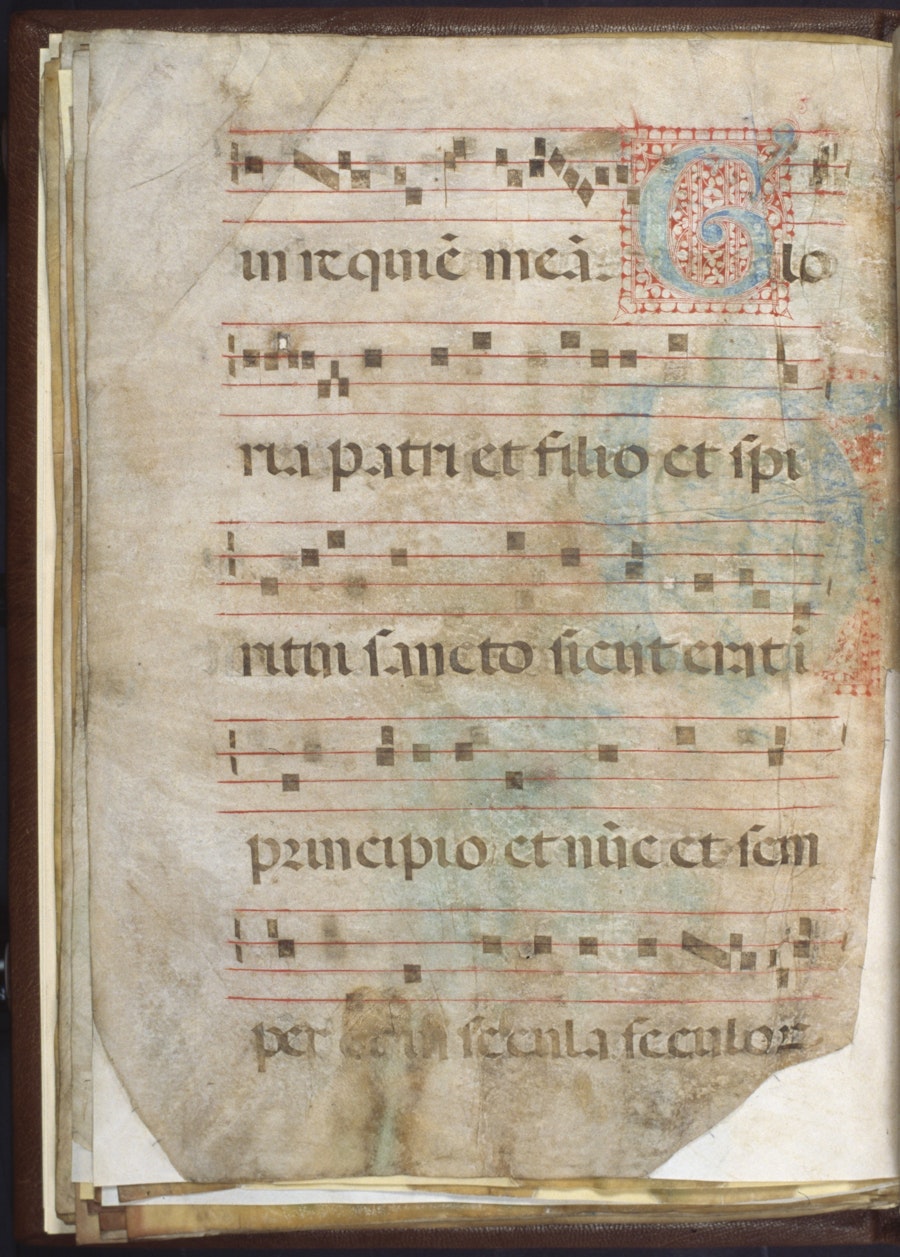 in requiē meā. Glo
ria patri et filio et spi
ritui sancto sicut erat ī
principio et nūc et sem
per et in secula seculoꝝ